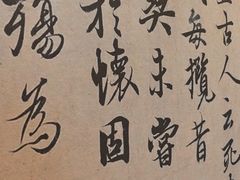 古人云死
每攬昔
契未嘗
於懷固
殤為